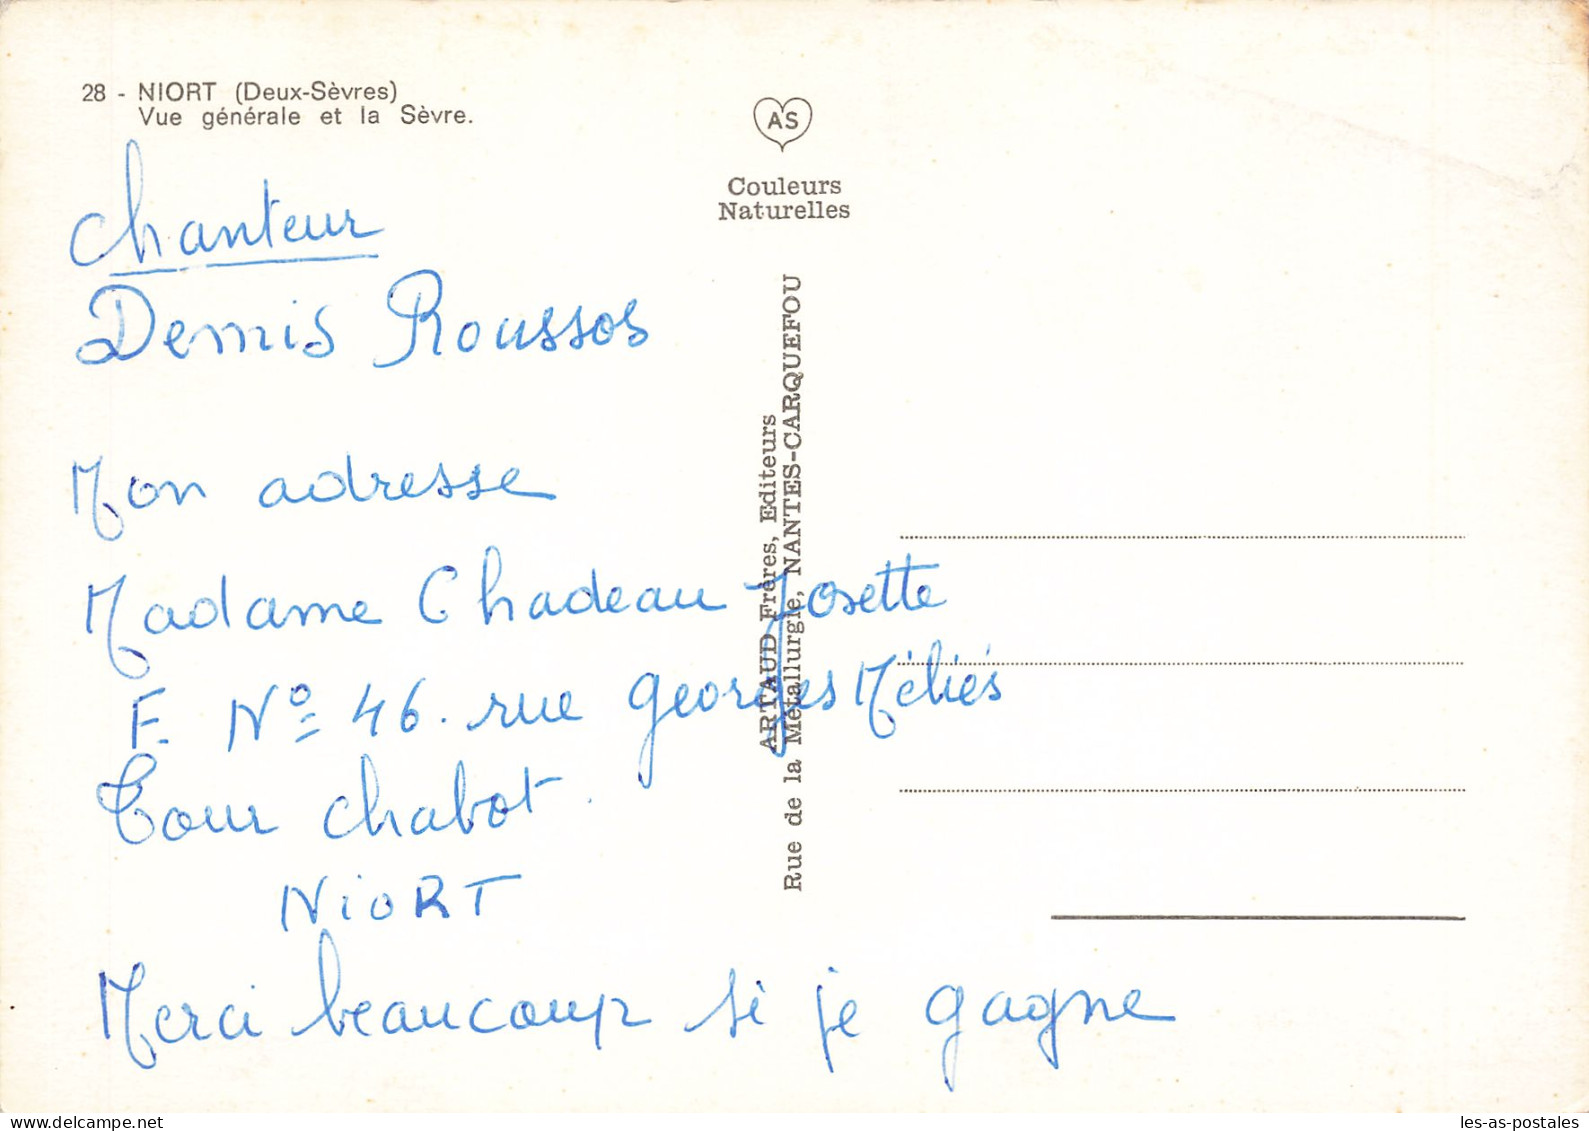 28 - NIORT (Deux-Sèvres)
Vue générale et la Sèvre.
AS
Couleurs
Naturelles
chanteur
Demis Roussos
Mon adresse
Madame Chadeau Josette
F. Nº 46. rue georges Méliés
Tour chabot.
NioRT
Merci beaucoup si je gagne
ARTAUD Frères, Editeurs
Rue de la Métallurgie, NANTES-CARQUEFOU
delcampe.net
les-as-postales